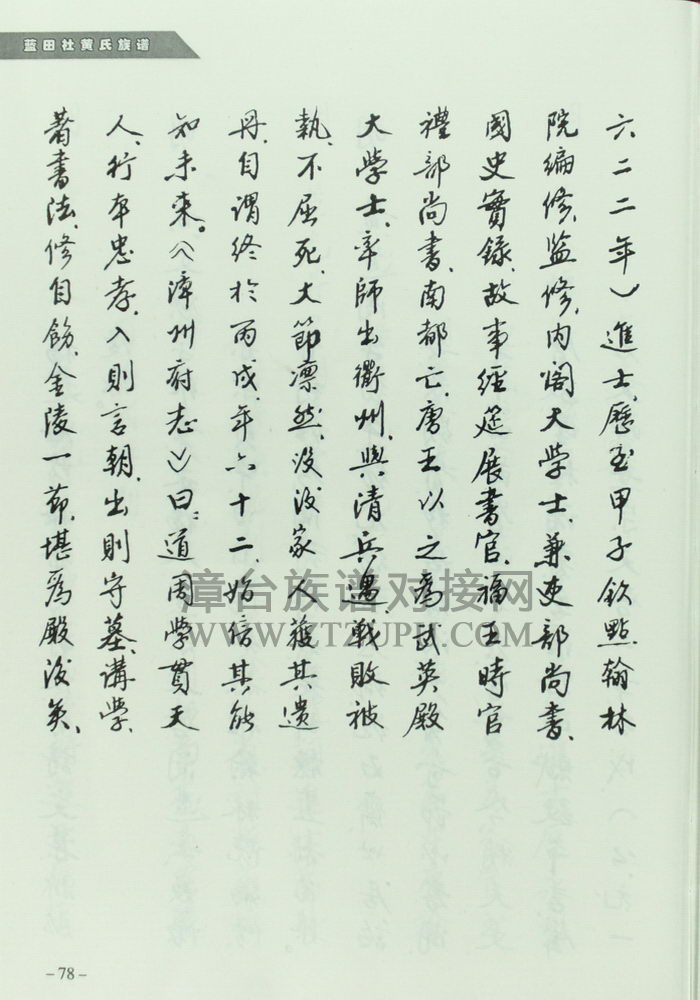 蓝田社黄氏族谱
六二二年）進士、歷至甲子欽點翰林
院編修、監修、内閣大學士、兼吏部尚書、
國史實錄、故事經筵展書官、福王時官
禮部尚書、南都亡、唐王以之為武英殿
大學士、率師出衢州、與清兵遇、戰敗被
執、不屈死、大節凛然、没後家人獲其遺
冊、自谓终於丙戌、年六十二、始信其能
知未来。《漳州府志》曰：道周學貫天
人、行本忠孝、入則言朝、出則守墓、講學、
著書法、修自飭、金陵一節、堪為殿後矣、
漳台族谱对接网
WWW.ZTZUPU.COM
-78-